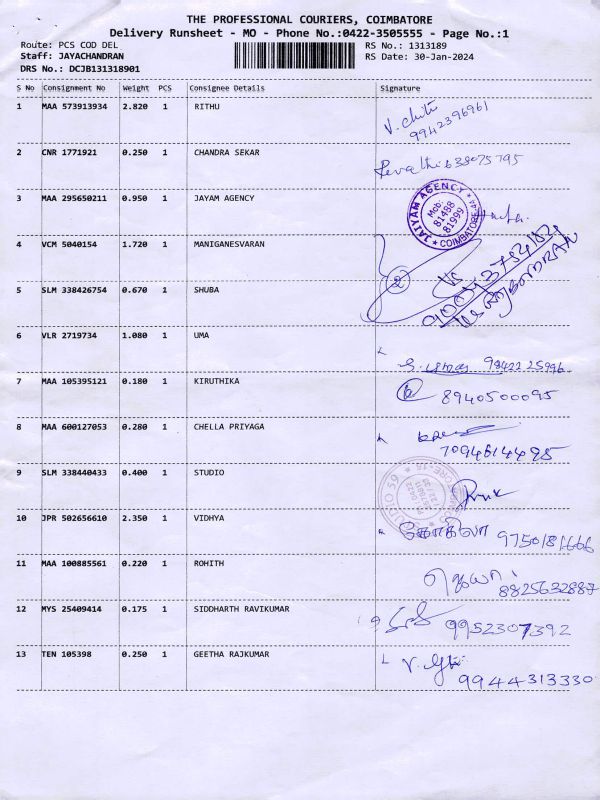 THE PROFESSIONAL COURIERS, COIMBATORE
Delivery Runsheet - MO - Phone No.:0422-3505555 - Page No.:1
Route: PCS COD DEL RS No.: 1313189
Staff: JAYACHANDRAN RS Date: 30-Jan-2024
DRS No.: DCJB131318901
S No Consignment No Weight PCS Consignee Details Signature
1 MAA 573913934 2.820 1 RITHU
9942396961
2 CNR 1771921 0.250 1 CHANDRA SEKAR
3 MAA 295650211 0.950 1 JAYAM AGENCY
JAIYAM AGENCY
Mob:
81488
81999
COIMBATORE-44
4 VCM 5040154 1.720 1 MANIGANESVARAN
5 SLM 338426754 0.670 1 SHUBA
6 VLR 2719734 1.080 1 UMA
S. umas 98422 25996
7 MAA 105395121 0.180 1 KIRUTHIKA
8940500095
8 MAA 600127053 0.280 1 CHELLA PRIYAGA
7094614495
9 SLM 338440433 0.400 1 STUDIO
10 JPR 502656610 2.350 1 VIDHYA
கோகிலா 9750181666
11 MAA 100885561 0.220 1 ROHITH
8825632887
12 MYS 25409414 0.175 1 SIDDHARTH RAVIKUMAR
9952307392
13 TEN 105398 0.250 1 GEETHA RAJKUMAR
9944313330